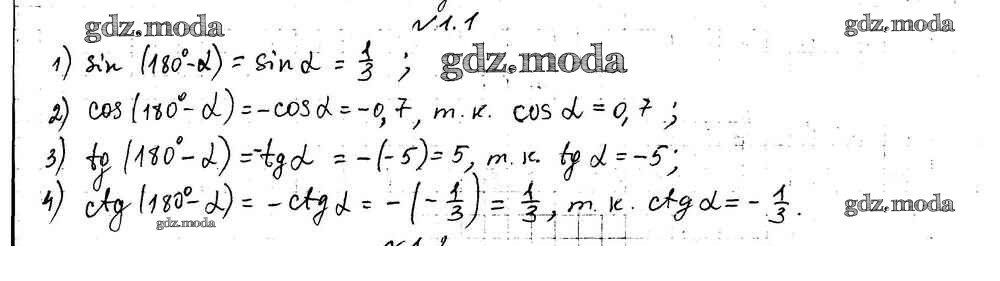 №1.1
gdz.moda gdz.moda
1) sin (180°-α) = sin α = 1/3 ; gdz.moda
2) cos (180°-α) = -cos α = -0,7, т.к. cos α = 0,7;
3) tg (180°-α) = -tg α = -(-5) = 5, т.к. tg α = -5;
4) ctg (180°-α) = -ctg α = -(-1/3) = 1/3, т.к. ctg α = -1/3. gdz.moda
gdz.moda